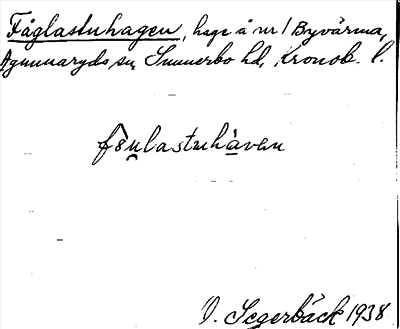 Fåglastuhagen, hage å nr 1 Byvärma,
Agunnaryds sn, Sunnerbo hd, Kronob. l.
fǒu̯lastuhàvan
O. Segerbäck 1938